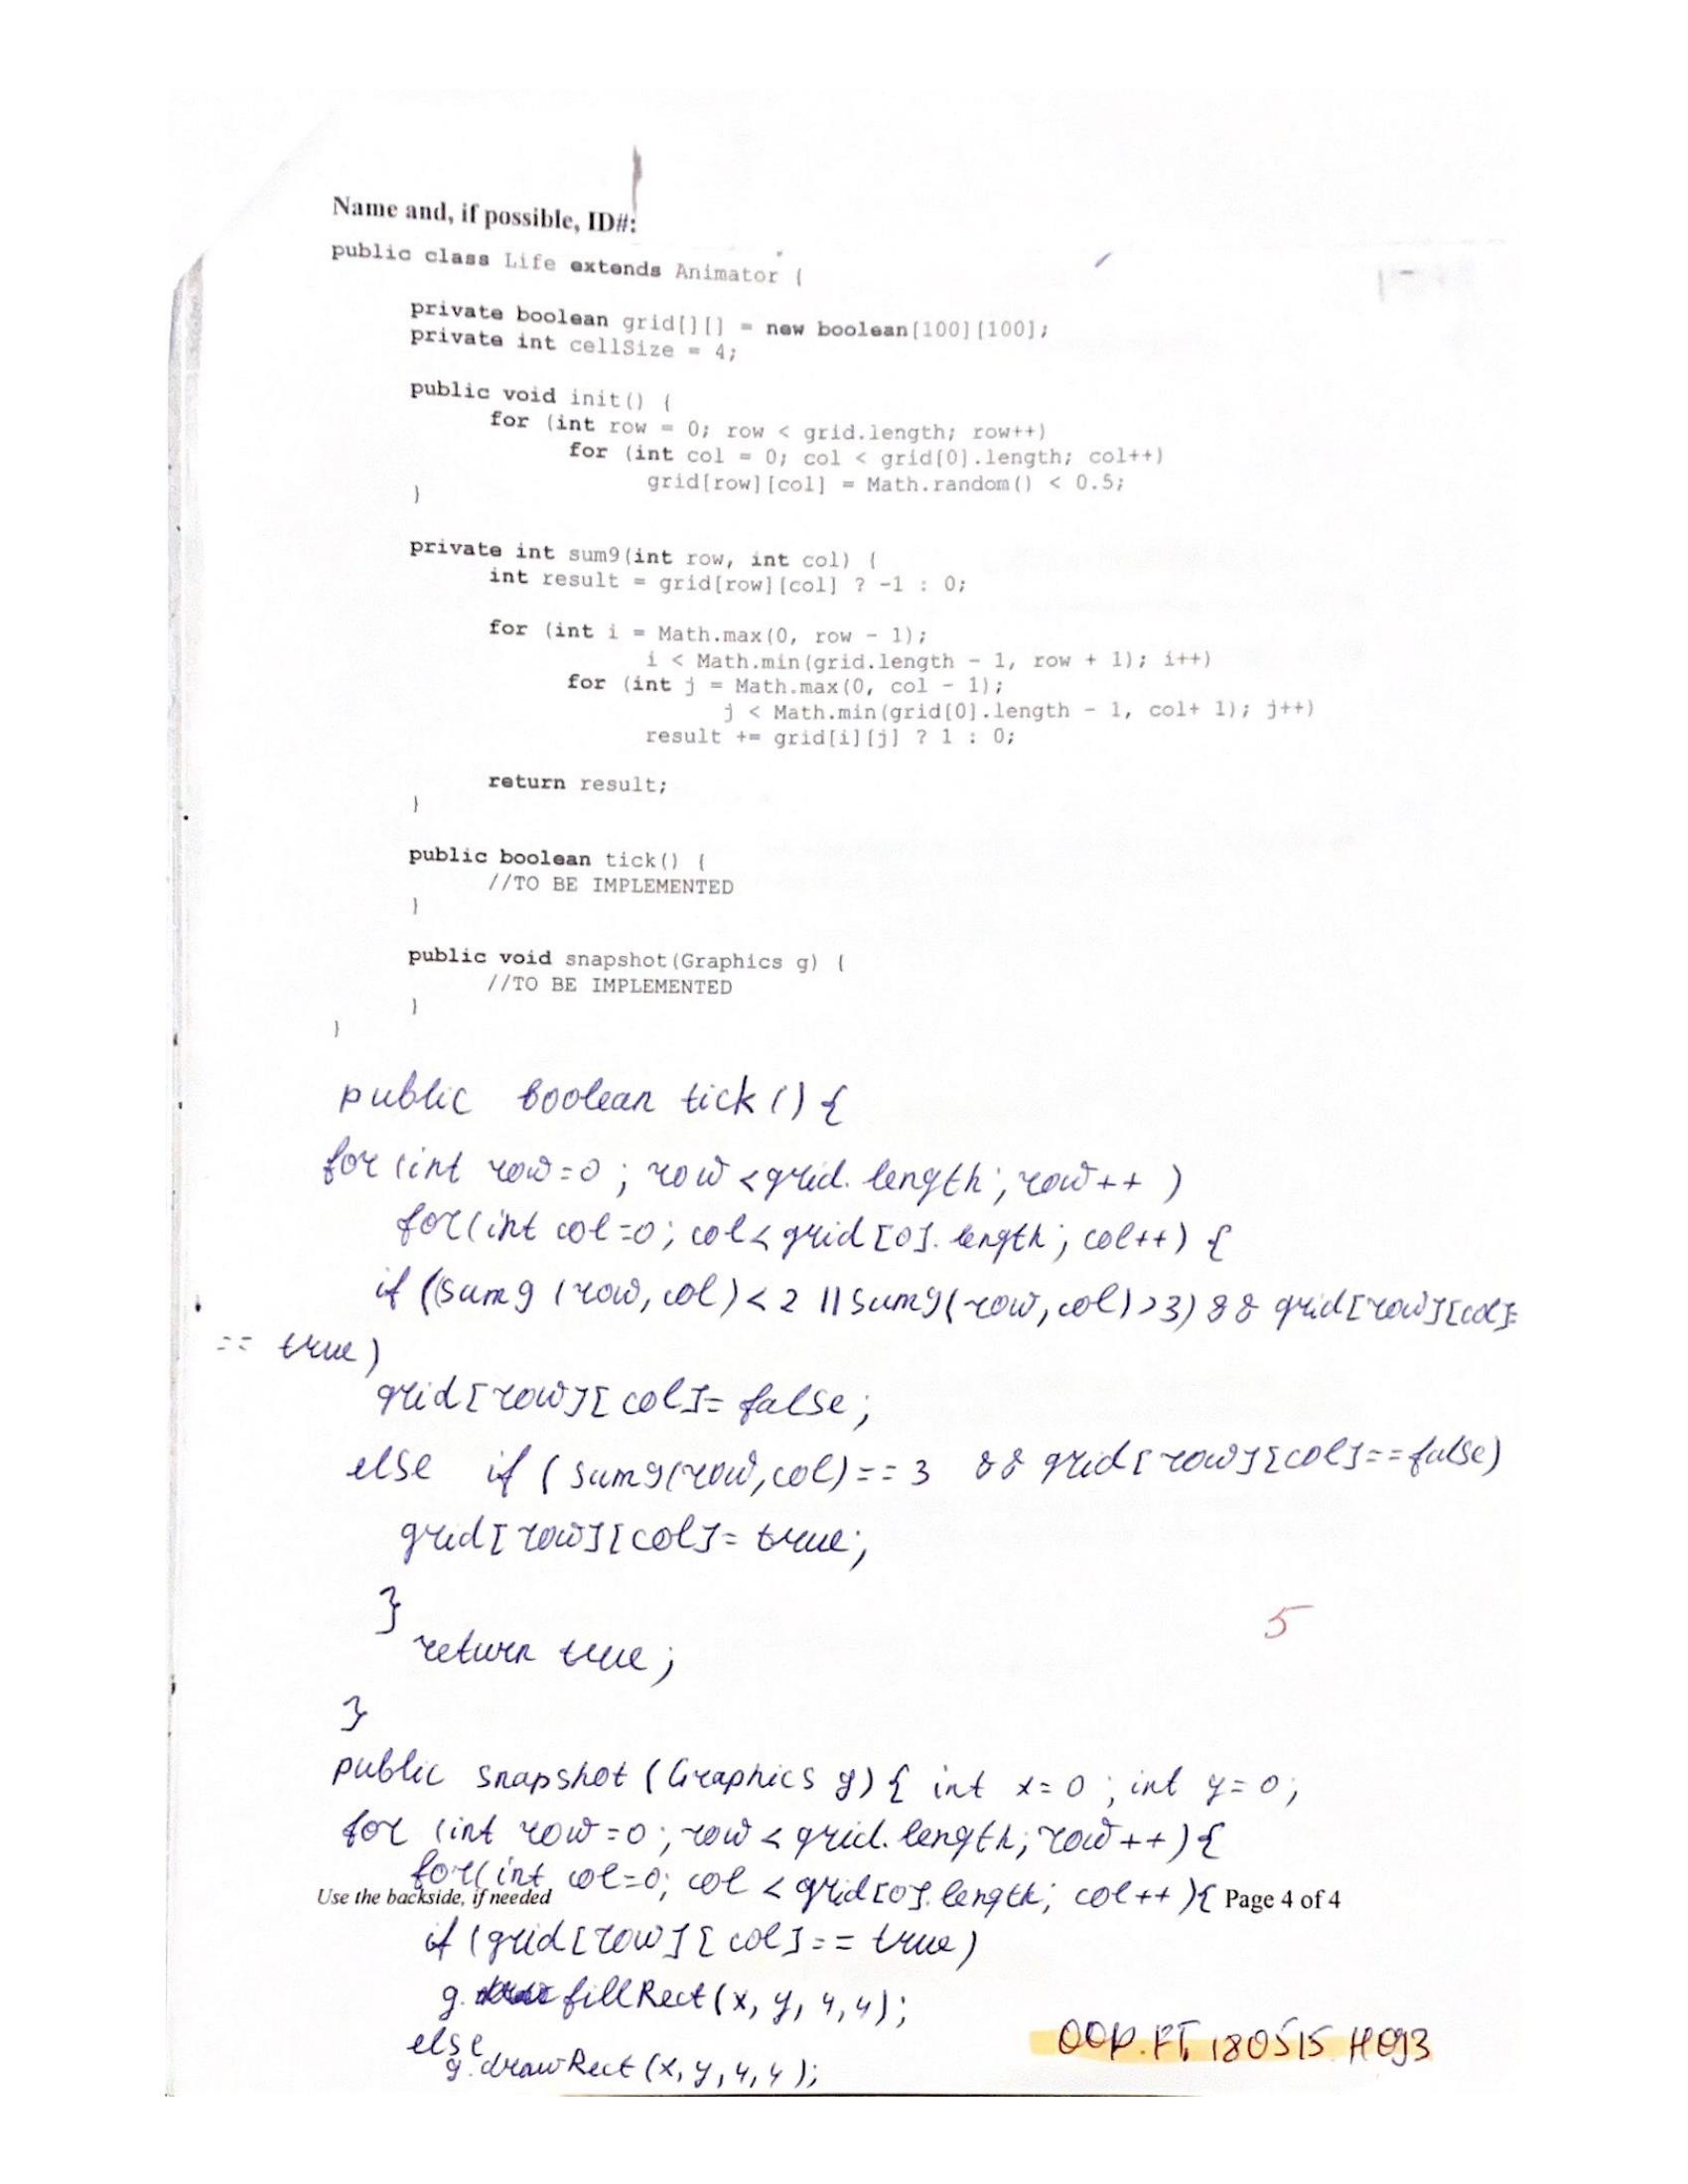 Name and, if possible, ID#:
public class Life extends Animator {
private boolean grid[][] = new boolean[100][100];
private int cellSize = 4;
public void init() {
for (int row = 0; row < grid.length; row++)
for (int col = 0; col < grid[0].length; col++)
grid[row][col] = Math.random() < 0.5;
}
private int sum9(int row, int col) {
int result = grid[row][col] ? -1 : 0;
for (int i = Math.max(0, row - 1);
i < Math.min(grid.length - 1, row + 1); i++)
for (int j = Math.max(0, col - 1);
j < Math.min(grid[0].length - 1, col+ 1); j++)
result += grid[i][j] ? 1 : 0;
return result;
}
public boolean tick() {
//TO BE IMPLEMENTED
}
public void snapshot(Graphics g) {
//TO BE IMPLEMENTED
}
}
public boolean tick () {
for (int row=0 ; row < grid. length ; row++ )
for(int col=0; col< grid [0]. length ; col++) {
if ((sum9 (row, col) < 2 || sum9(row, col) >3) && grid[row][col]
== true)
grid[row][col]= false ;
else if ( sum9(row, col) == 3 && grid[row][col]==false)
grid[row][col]= true;
}
5
return true ;
}
public snapshot (Graphics g) { int x=0 ; int y=0 ;
for (int row =0 ; row < grid. length; row ++) {
for(int col=0; col < grid[0]. length; col++ ){
Use the backside, if needed Page 4 of 4
if (grid[row][col]== true)
g. fillRect (x, y, 4,4);
else
g. drawRect (x, y, 4,4 );
OOP.FT. 180515.H093